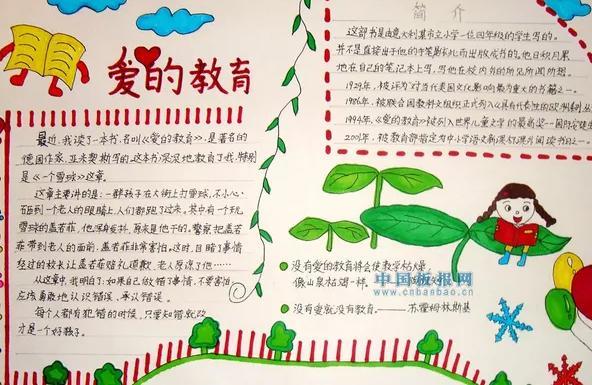 爱的教育
最近,我读了一本书,名叫《爱的教育》,是著名的
德国作家,亚米契斯写的,这本书深深地教育了我,特别
是《一个雪球》这章。
这章主要讲的是:一群孩子在大街上打雪球,不小心,
石子到一个老人的眼睛上,人们都跑了过来,其中有一个扔
雪球的孟若菲,他浑身发抖,原来是他干的,警察把孟若
菲带到老人的面前,孟若菲非常害怕,这时,目睹了事情
经过的校长让孟若菲赔礼道歉,老人原谅了他……
从这章中,我明白了:如果自己做错了事情,不要害怕,
应该勇敢地认识错误,承认错误。
每个人都有犯错的时候,只要知错就改
才是一个好孩子。
简 介
这部书是由意大利某市立小学一位四年级的学生写的。
并不是直接出于他的手笔
地在自己的笔记本上写,写他在校内外的所见所闻所想。
1929年,被评为"对当代美国文化影响最为重大的书籍之一。
1986年,被联合国教科文组织正式列入《具有代表性的欧洲系列丛
1994年,《爱的教育》被列入世界儿童文学的最高奖--国际安徒生
2001年,被教育部指定为中小学语文新课标课外阅读书目之一。
没有爱的教育将会使教学枯燥,
像山泉枯竭一样。
没有爱就没有教育。——苏霍姆林斯基
中国板报网
www.cnbanbao.cn